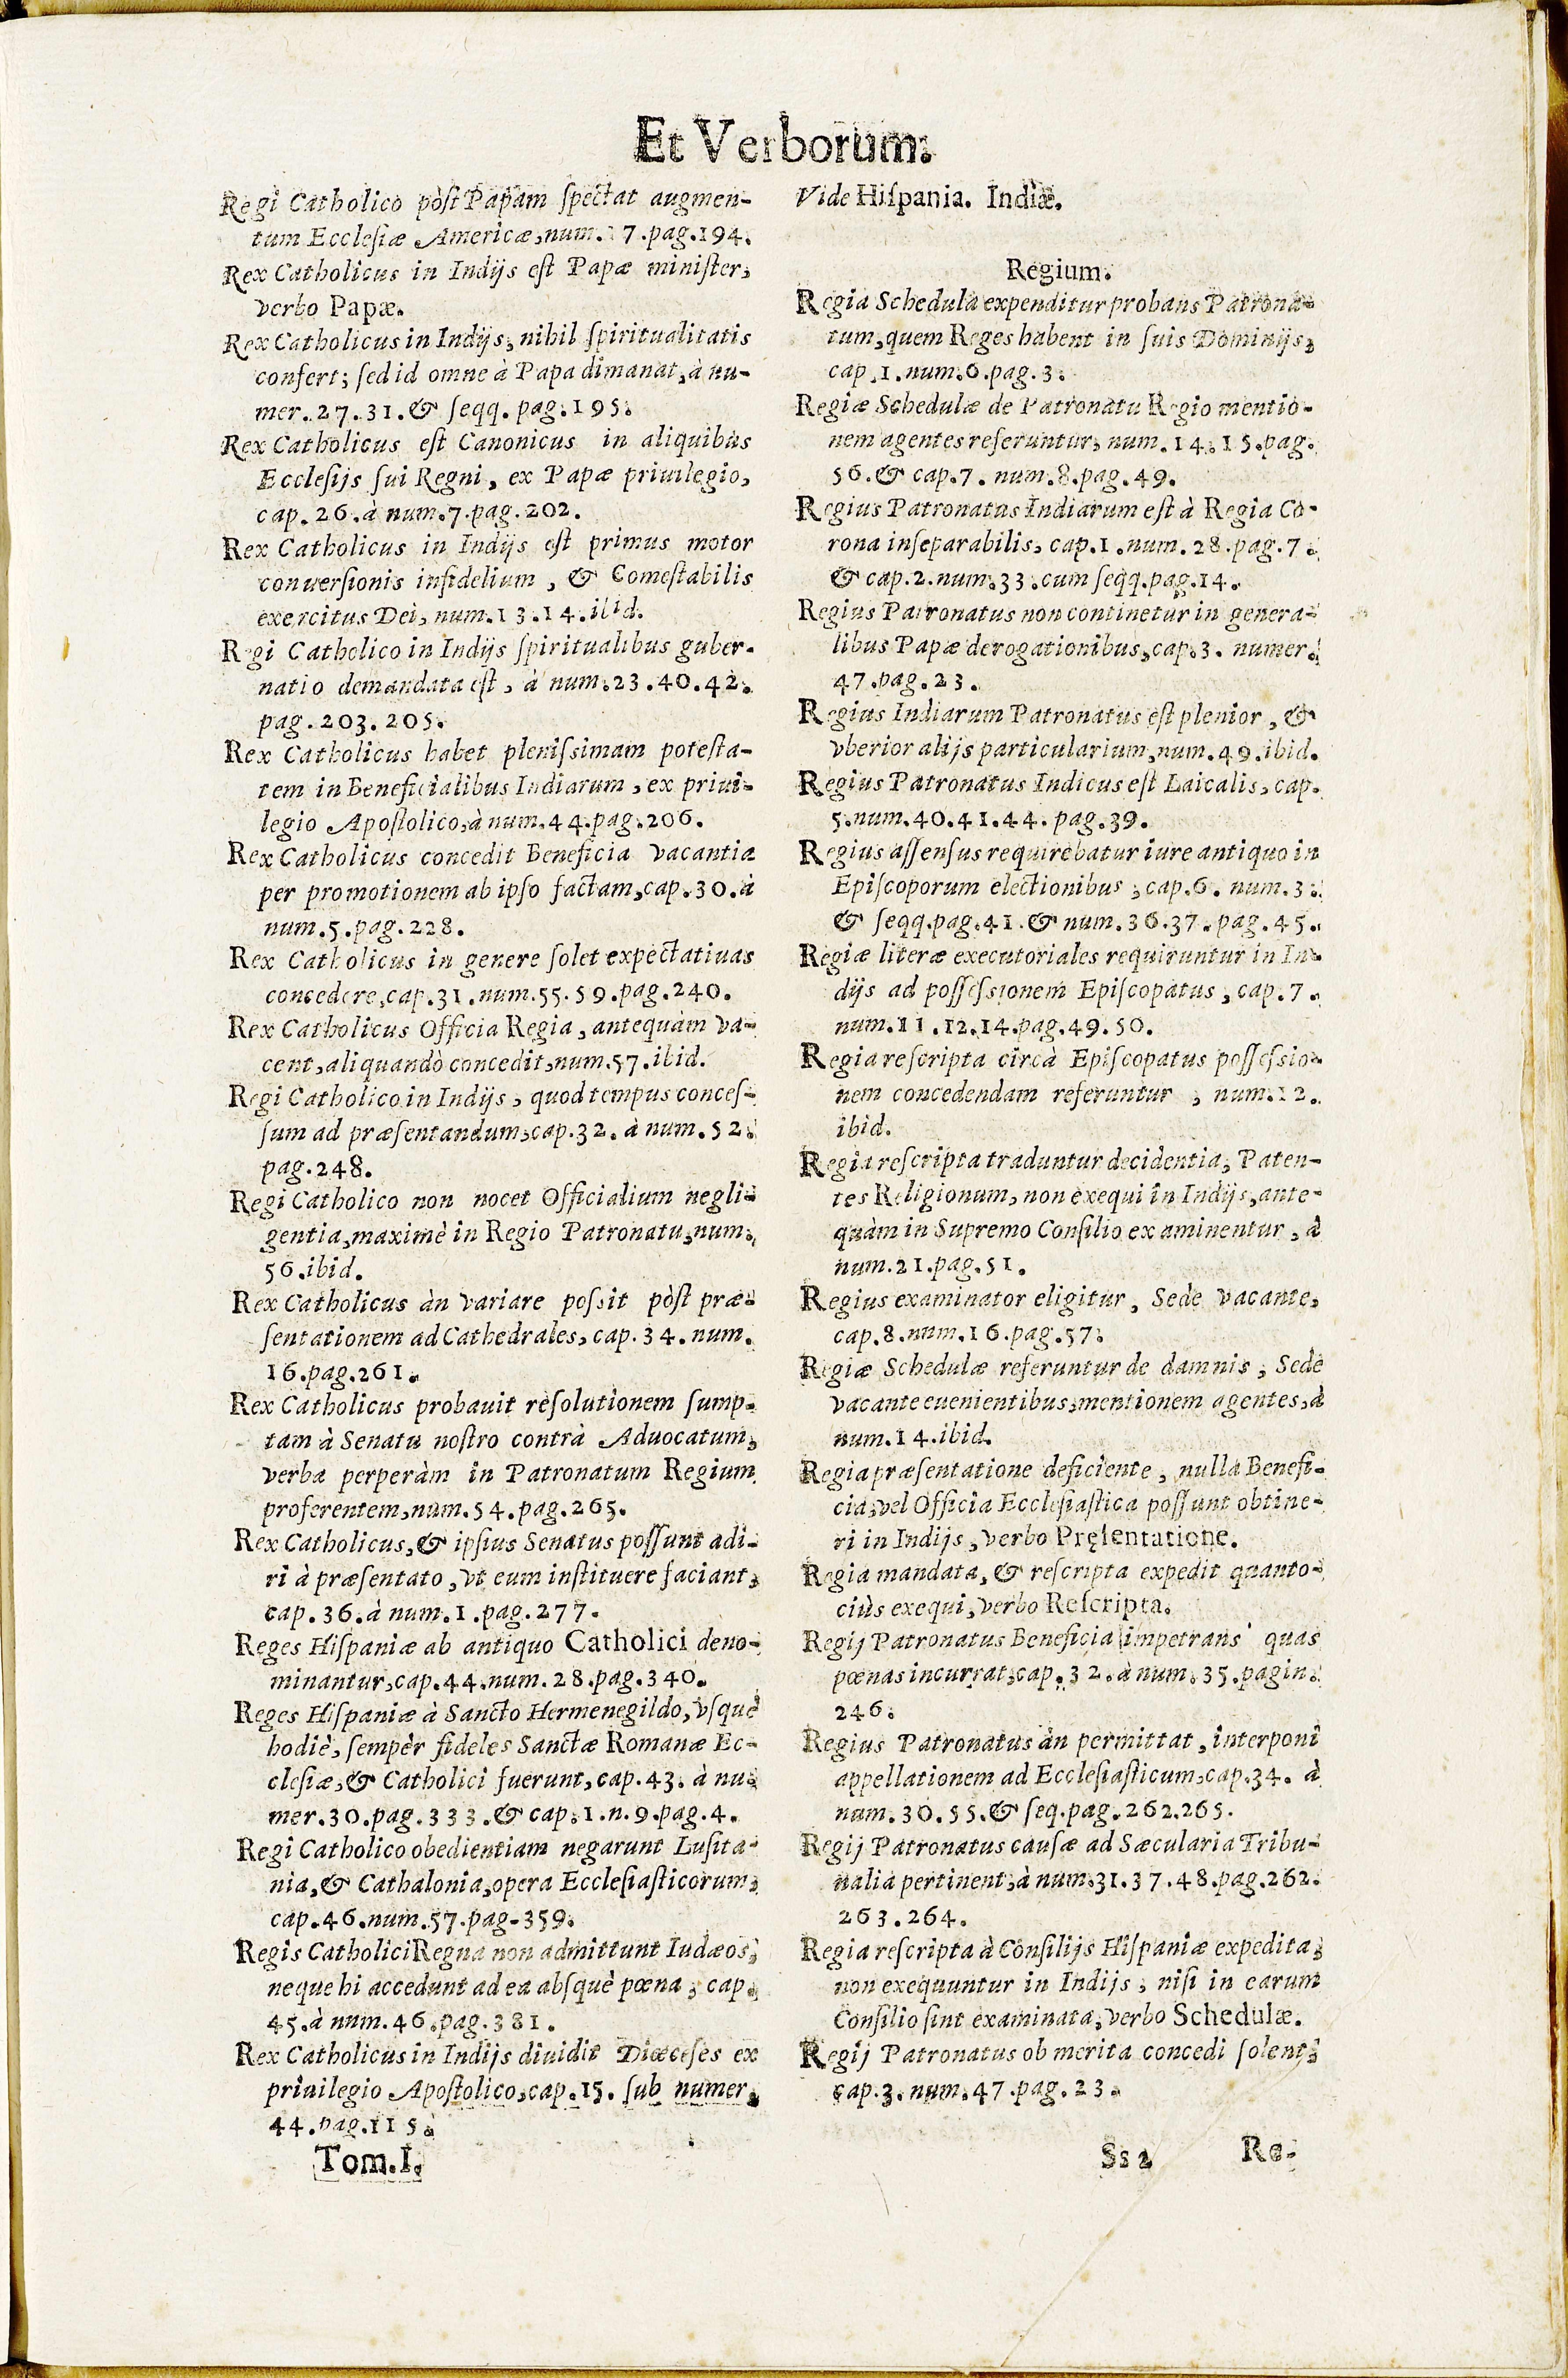 Et Verborum.
Regi Catholico pòſt Papam ſpectat augmen-
tum Eccleſiæ Americæ, num. 7. pag. 194.
Rex Catholicus in Indijs eſt Papæ miniſter,
verbo Papæ.
Rex Catholicus in Indijs, nihil ſpiritualitatis
confert; ſed id omne à Papa dimanat, à nu-
mer. 27. 31. & ſeqq. pag. 195.
Rex Catholicus eſt Canonicus in aliquibùs
Eccleſijs ſui Regni, ex Papæ priuilegio,
cap. 26. à num. 7. pag. 202.
Rex Catholicus in Indijs eſt primus motor
conuerſionis infidelium, & Comeſtabilis
exercitus Dei, num. 13. 14. ibid.
Regi Catholico in Indijs ſpiritualibus guber-
natio demandata eſt, à num. 23. 40. 42.
pag. 203. 205.
Rex Catholicus habet pleniſsimam poteſta-
tem in Beneficialibus Indiarum, ex priui-
legio Apoſtolico, à num. 44. pag. 206.
Rex Catholicus concedit Beneficia vacantia
per promotionem ab ipſo factam, cap. 30. à
num. 5. pag. 228.
Rex Catholicus in genere ſolet expectatiuas
concedere, cap. 31. num. 55. 59. pag. 240.
Rex Catholicus Officia Regia, antequàm va-
cent, aliquandò concedit, num. 57. ibid.
Regi Catholico in Indijs, quod tempus conceſ-
ſum ad præſentandum, cap. 32. à num. 52.
pag. 248.
Regi Catholico non nocet Officialium negli-
gentia, maximè in Regio Patronatu, num.
56. ibid.
Rex Catholicus àn variare poſsit pòſt præ-
ſentationem ad Cathedrales, cap. 34. num.
16. pag. 261.
Rex Catholicus probauit reſolutionem ſump-
tam à Senatu noſtro contrà Aduocatum,
verba perperàm in Patronatum Regium
proferentem, num. 54. pag. 265.
Rex Catholicus, & ipſius Senatus poſſunt adi-
ri à præſentato, vt eum inſtituere faciant,
cap. 36. à num. 1. pag. 277.
Reges Hiſpaniæ ab antiquo Catholici deno-
minantur, cap. 44. num. 28. pag. 340.
Reges Hiſpaniæ à Sancto Hermenegildo, vſquè
hodiè, ſempèr fideles Sanctæ Romanæ Ec-
cleſiæ, & Catholici fuerunt, cap. 43. à nu-
mer. 30. pag. 333. & cap. 1. n. 9. pag. 4.
Regi Catholico obedientiam negarunt Luſita-
nia, & Cathalonia, opera Eccleſiaſticorum,
cap. 46. num. 57. pag. 359.
Regis Catholici Regna non admittunt Iudæos,
neque hi accedunt ad ea abſquè pœna, cap.
45. à num. 46. pag. 381.
Rex Catholicus in Indijs diuidit Diœceſes ex
priuilegio Apoſtolico, cap. 15. ſub numer.
44. pag. 115.
Tom. I.
Vide Hiſpania. Indiæ.
Regium.
Regia Schedula expenditur probans Patrona-
tum, quem Reges habent in ſuis Dominijs,
cap. 1. num. 6. pag. 3.
Regiæ Schedulæ de Patronatu Regio mentio-
nem agentes referuntur, num. 14. 15. pag.
56. & cap. 7. num. 8. pag. 49.
Regius Patronatus Indiarum eſt à Regia Co-
rona inſeparabilis, cap. 1. num. 28. pag. 7.
& cap. 2. num. 33. cum ſeqq. pag. 14.
Regius Patronatus non continetur in genera-
libus Papæ derogationibus, cap. 3. numer.
47. pag. 23.
Regius Indiarum Patronatus eſt plenior, &
vberior alijs particularium, num. 49. ibid.
Regius Patronatus Indicus eſt Laicalis, cap.
5. num. 40. 41. 44. pag. 39.
Regius aſſenſus requirebatur iure antiquo in
Epiſcoporum electionibus, cap. 6. num. 3.
& ſeqq. pag. 41. & num. 36. 37. pag. 45.
Regiæ literæ executoriales requiruntur in In-
dijs ad poſſeſsionem Epiſcopatus, cap. 7.
num. 11. 12. 14. pag. 49. 50.
Regia reſcripta circà Epiſcopatus poſſeſsio-
nem concedendam referuntur, num. 12.
ibid.
Regia reſcripta traduntur decidentia, Paten-
tes Religionum, non exequi in Indijs, ante-
quàm in Supremo Conſilio examinentur, à
num. 21. pag. 51.
Regius examinator eligitur, Sede vacante,
cap. 8. num. 16. pag. 57.
Regiæ Schedulæ referuntur de damnis, Sede
vacante euenientibus, mentionem agentes, à
num. 14. ibid.
Regia præſentatione deficiente, nulla Benefi-
cia, vel Officia Eccleſiaſtica poſſunt obtine-
ri in Indijs, verbo Pręſentatione.
Regia mandata, & reſcripta expedit quanto-
ciùs exequi, verbo Reſcripta.
Regij Patronatus Beneficia impetrans quas
pœnas incurrat, cap. 32. à num. 35. pagin.
246.
Regius Patronatus àn permittat, interponi
appellationem ad Eccleſiaſticum, cap. 34. à
num. 30. 55. & ſeq. pag. 262. 265.
Regij Patronatus cauſæ ad Sæcularia Tribu-
nalia pertinent, à num. 31. 37. 48. pag. 262.
263. 264.
Regia reſcripta à Conſilijs Hiſpaniæ expedita,
non exequuntur in Indijs, niſi in earum
Conſilio ſint examinata, verbo Schedulæ.
Regij Patronatus ob merita concedi ſolent,
cap. 3. num. 47. pag. 23.
Ss 2 Re-